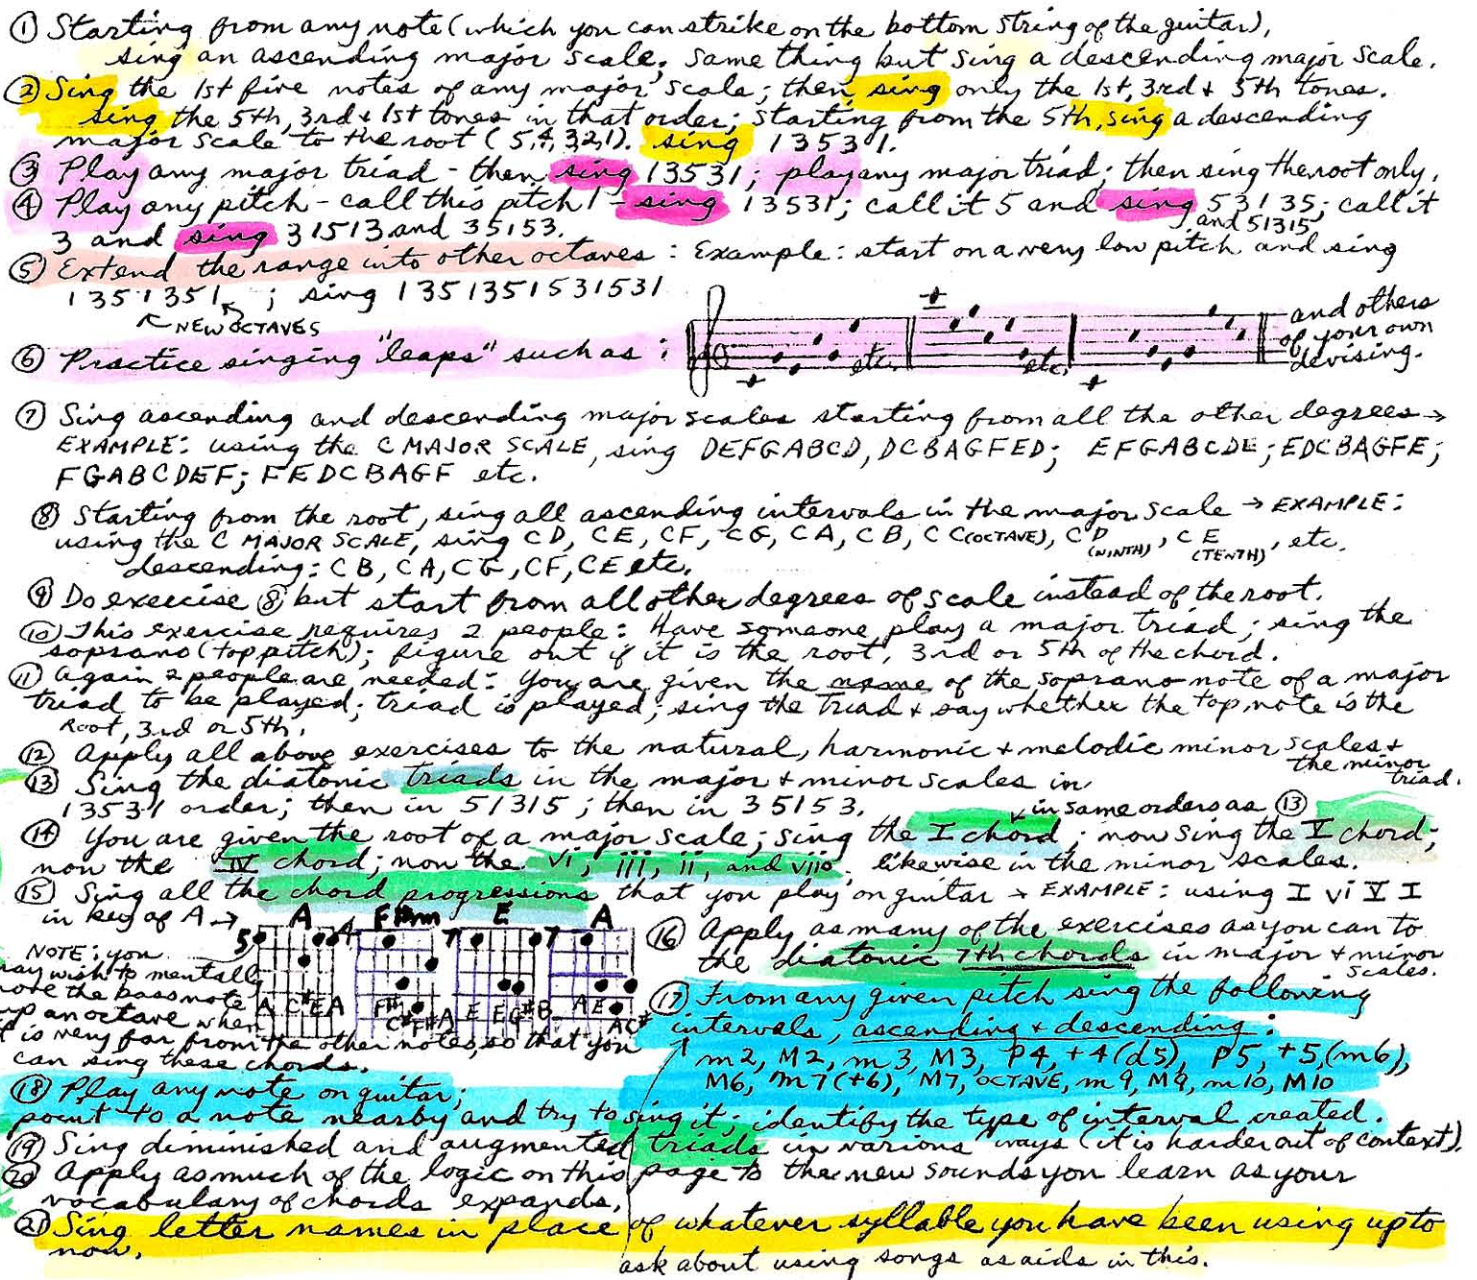 ① Starting from any note (which you can strike on the bottom string of the guitar),
sing an ascending major scale; same thing but sing a descending major scale.
② Sing the 1st five notes of any major scale; then sing only the 1st, 3rd + 5th tones.
Sing the 5th, 3rd + 1st tones in that order; starting from the 5th, sing a descending
major scale to the root (5,4,3,2,1). sing 13531.
③ Play any major triad - then sing 13531; play any major triad; then sing the root only.
④ Play any pitch - call this pitch 1 - sing 13531; call it 5 and sing 53135; call it
and 51315
3 and sing 31513 and 35153.
⑤ Extend the range into other octaves: Example: start on a very low pitch and sing
1351351 ; sing 1351351531531
NEW OCTAVES
⑥ Practice singing "leaps" such as:
etc. etc.
and others
of your own
devising.
⑦ Sing ascending and descending major scales starting from all the other degrees →
EXAMPLE: using the C MAJOR SCALE, sing DEFGABCD, DCBAGFED; EFGABCDE; EDCBAGFE;
FGABCDEF; FEDCBAGF etc.
⑧ Starting from the root, sing all ascending intervals in the major scale → EXAMPLE:
using the C MAJOR SCALE, sing CD, CE, CF, CG, CA, CB, CC (OCTAVE), CD (NINTH), CE (TENTH), etc.
descending: CB, CA, CG, CF, CE etc.
⑨ Do exercise ⑧ but start from all other degrees of scale instead of the root.
⑩ This exercise requires 2 people: Have someone play a major triad; sing the
soprano (top pitch); figure out if it is the root, 3rd or 5th of the chord.
⑪ Again 2 people are needed: You are given the name of the soprano note of a major
triad to be played; triad is played; sing the triad + say whether the top note is the
Root, 3rd or 5th.
⑫ Apply all above exercises to the natural, harmonic + melodic minor scales +
the minor
triad.
⑬ Sing the diatonic triads in the major + minor scales in
13531 order; then in 51315; then in 35153.
in same orders as ⑬
⑭ You are given the root of a major scale; sing the I chord; now sing the V chord;
now the IV chord; now the vi, iii, ii, and viio. likewise in the minor scales.
⑮ Sing all the chord progressions that you play on guitar → EXAMPLE: using I vi V I
in key of A →
A F#m E A
5 4 7 7
A C# E A
F# C# F# A
E E G# B
A E A C#
NOTE: you
may wish to mentally
move the bass note
up an octave when
it is very far from the other notes, so that you
can sing these chords.
⑯ Apply as many of the exercises as you can to
the diatonic 7th chords in major + minor
scales.
⑰ From any given pitch sing the following
intervals, ascending + descending:
m2, M2, m3, M3, P4, +4 (d5), P5, +5, (m6),
M6, m7 (+6), M7, OCTAVE, m9, M9, m10, M10
⑱ Play any note on guitar;
point to a note nearby and try to sing it; identify the type of interval created.
⑲ Sing diminished and augmented triads in various ways (it is harder out of context).
⑳ Apply as much of the logic on this page to the new sounds you learn as your
vocabulary of chords expands.
㉑ Sing letter names in place of whatever syllable you have been using up to
now.
ask about using songs as aids in this.